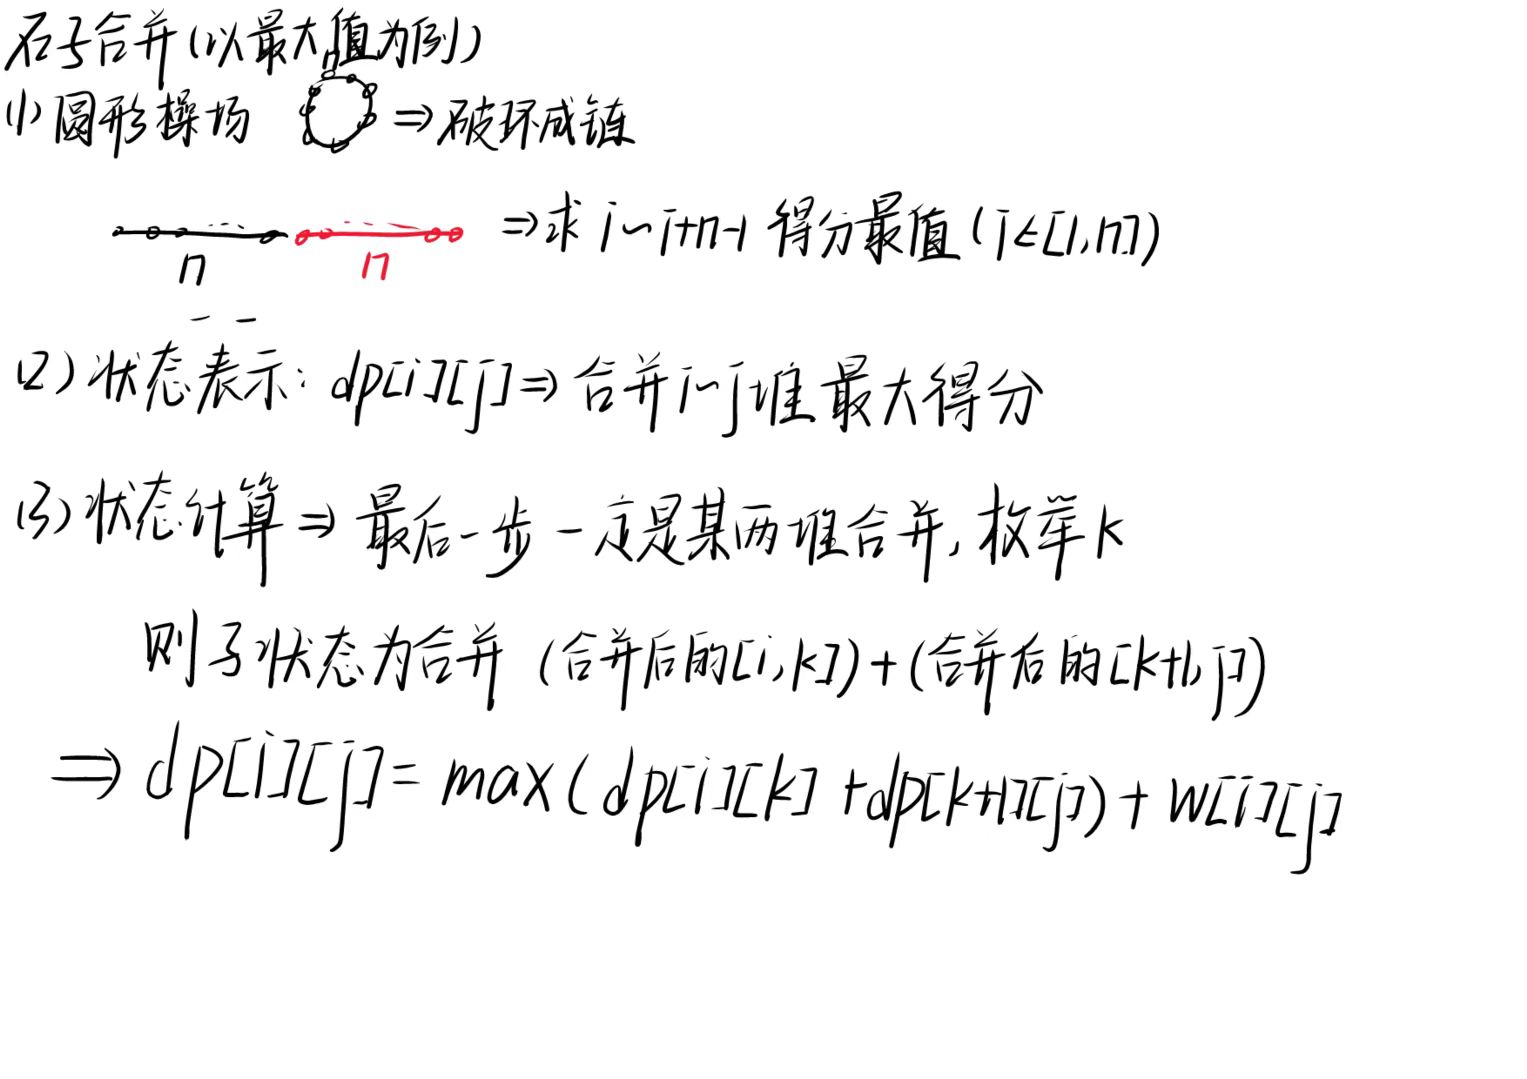 石子合并(以最大值为例)
(1)圆形操场 n ⇒破环成链
⇒求 i~i+n-1 得分最值(i∈[1,n])
n n
(2)状态表示: dp[i][j]⇒合并i~j堆最大得分
(3)状态计算⇒最后一步一定是某两堆合并,枚举k
则子状态为合并(合并后的[i,k])+(合并后的[k+1,j])
⇒dp[i][j]=max(dp[i][k]+dp[k+1][j])+w[i][j]